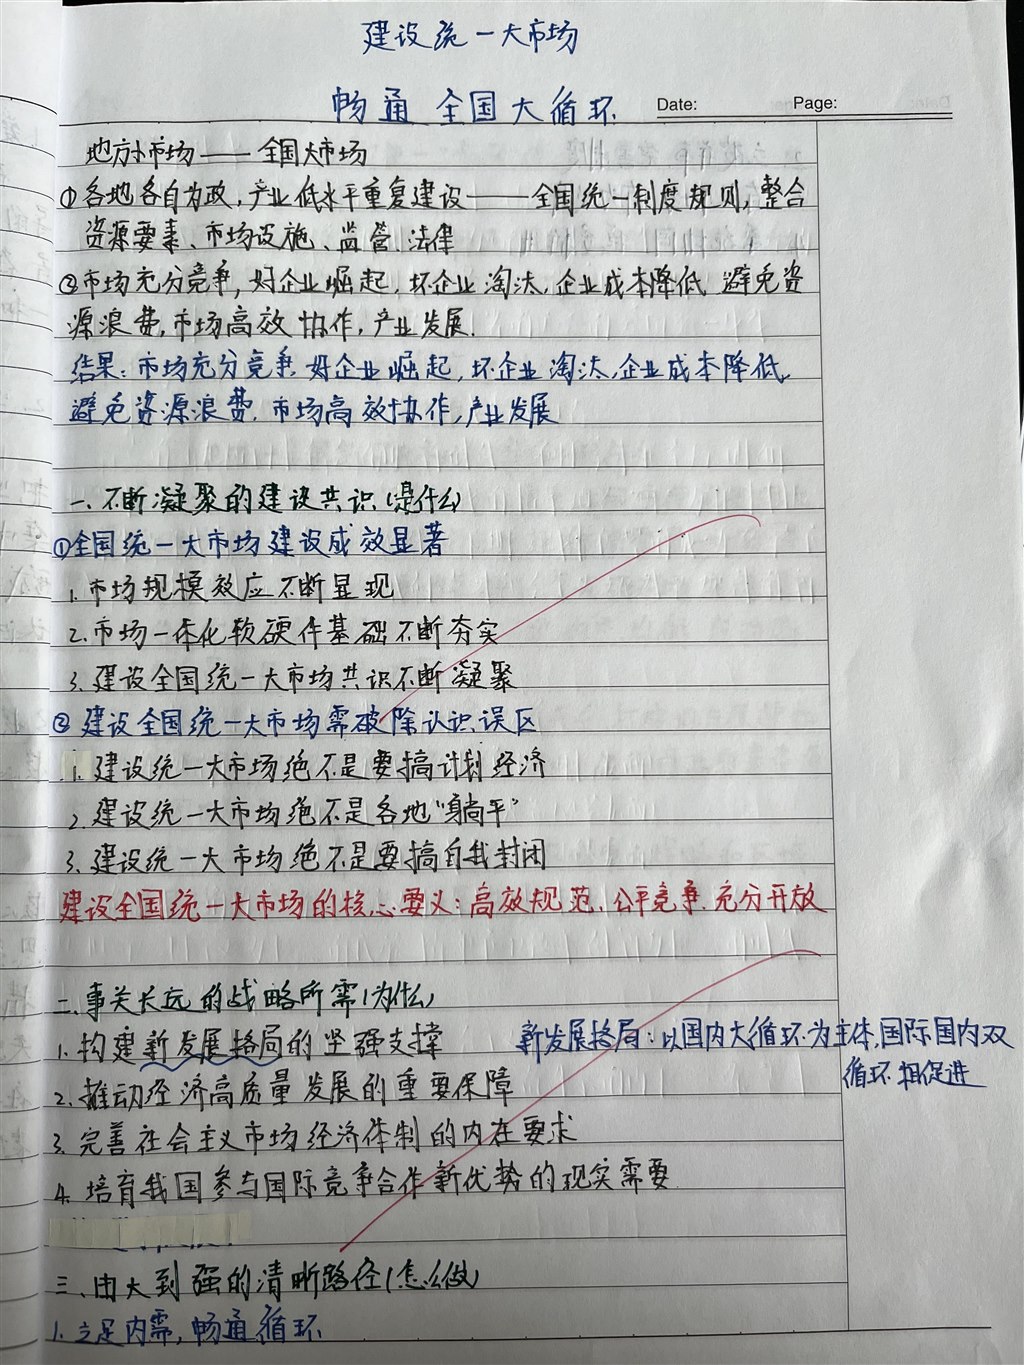 建设统一大市场
畅通全国大循环
Date: Page:
地方小市场——全国大市场
①各地各自为政,产业低水平重复建设——全国统一制度规则,整合
资源要素、市场设施、监管、法律
②市场充分竞争,好企业崛起,坏企业淘汰,企业成本降低 避免资
源浪费,市场高效协作,产业发展.
结果:市场充分竞争,好企业崛起,坏企业淘汰,企业成本降低,
避免资源浪费,市场高效协作,产业发展
一、不断凝聚的建设共识(是什么)
①全国统一大市场建设成效显著
1.市场规模效应不断显现
2.市场一体化软硬件基础不断夯实
3.建设全国统一大市场共识不断凝聚
②建设全国统一大市场需破除认识误区
1.建设统一大市场绝不是要搞计划经济
2.建设统一大市场绝不是各地“躺平”
3.建设统一大市场绝不是要搞自我封闭
建设全国统一大市场的核心要义:高效规范、公平竞争、充分开放
二、事关长远的战略所需(为什么)
1.构建新发展格局的坚强支撑
新发展格局:以国内大循环为主体,国际国内双
循环相促进
2.推动经济高质量发展的重要保障
3.完善社会主义市场经济体制的内在要求
4.培育我国参与国际竞争合作新优势的现实需要
三、由大到强的清晰路径(怎么做)
1.立足内需,畅通循环